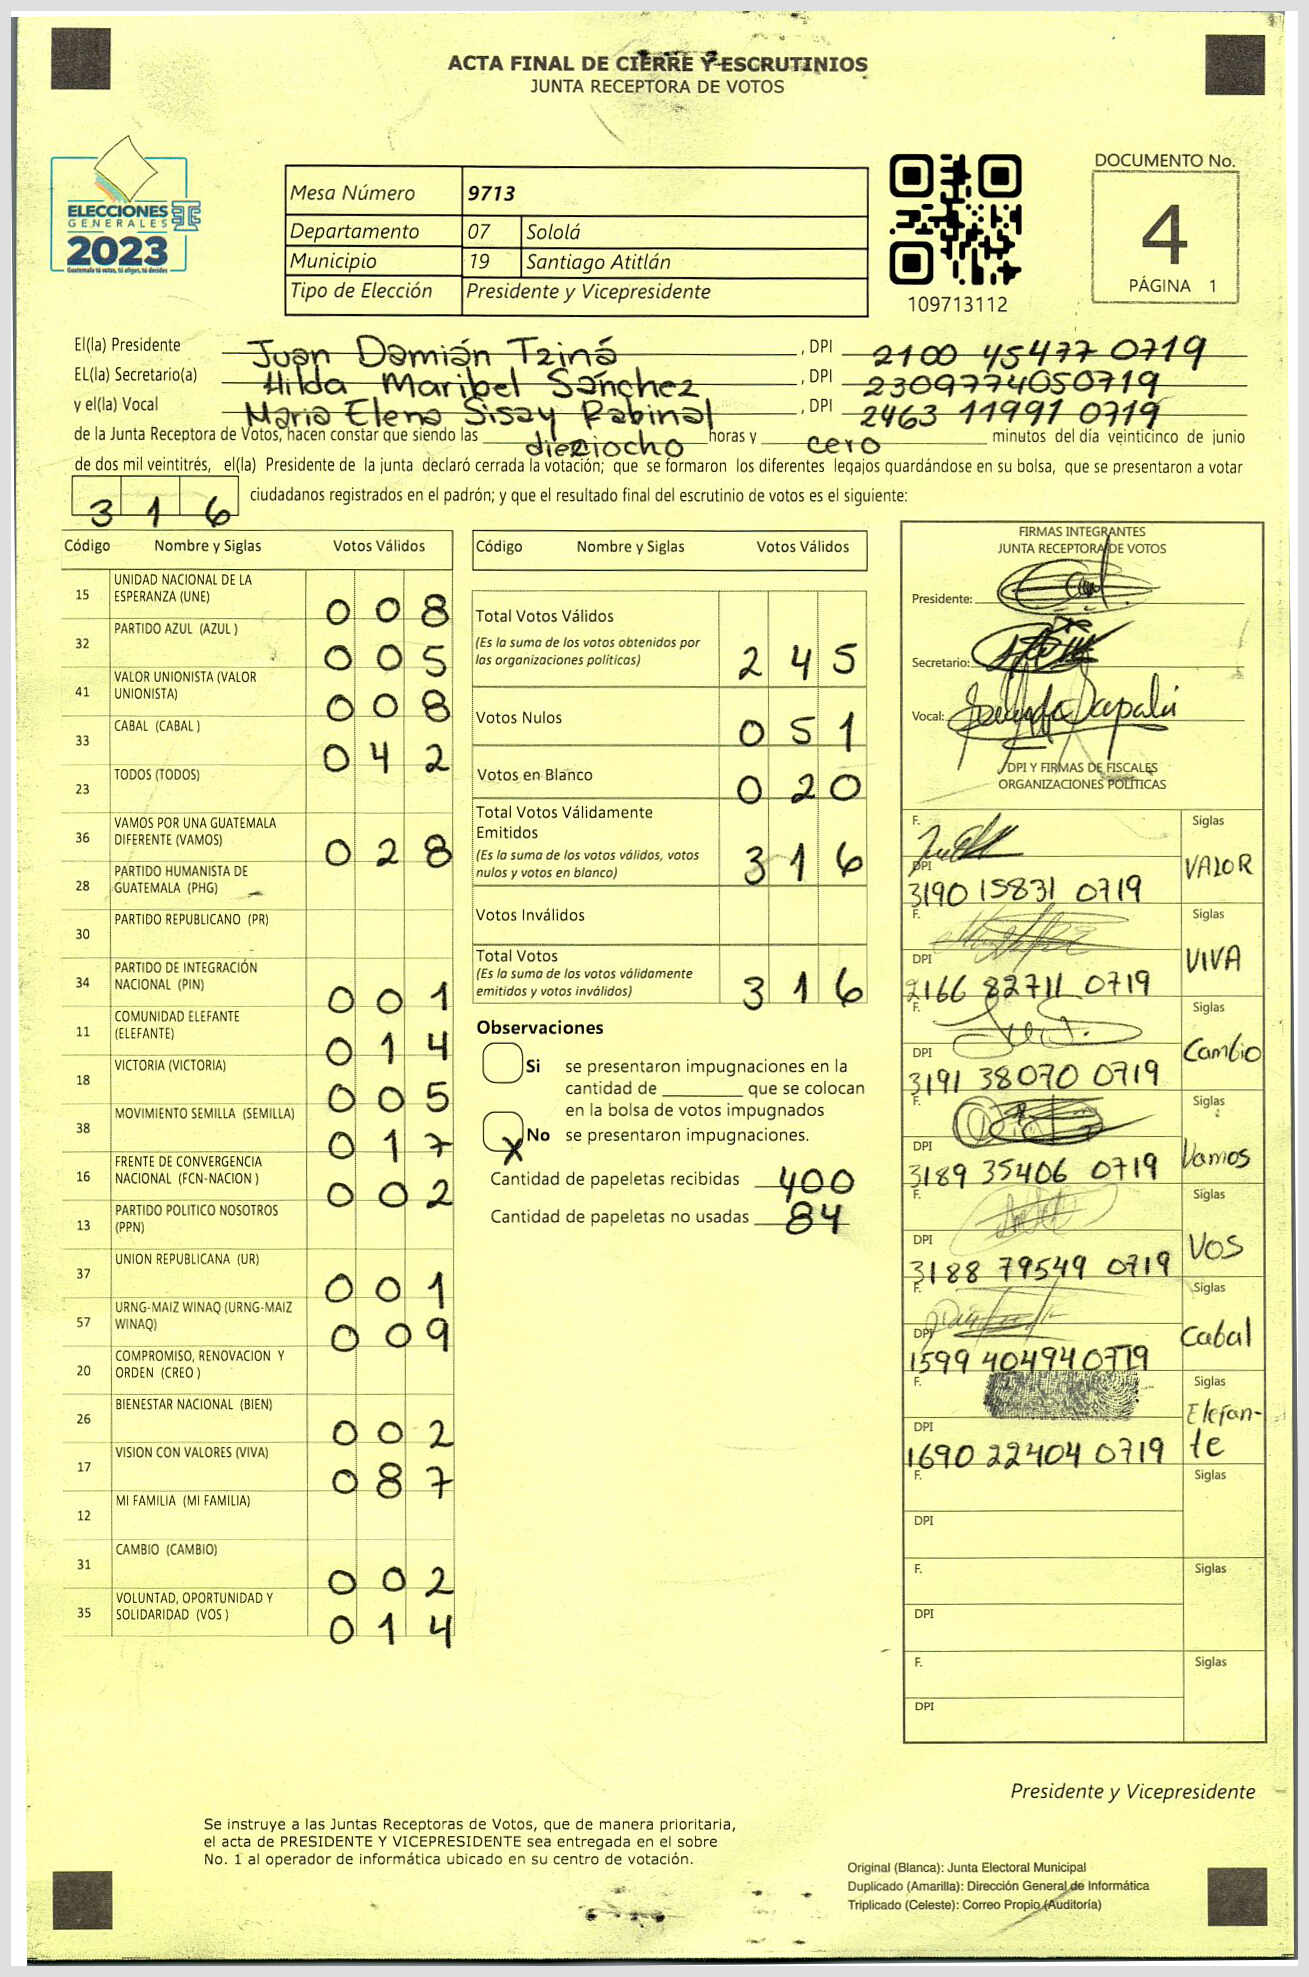 ACTA FINAL DE CIERRE Y ESCRUTINIOS
JUNTA RECEPTORA DE VOTOS
ELECCIONES
GENERALES
2023
Guatemala tú votas, tú eliges, tú decides
Mesa Número 9713
Departamento 07 Sololá
Municipio 19 Santiago Atitlán
Tipo de Elección Presidente y Vicepresidente
109713112
DOCUMENTO No.
4
PÁGINA 1
El(la) Presidente Juan Damián Tziná , DPI 2100 45477 0719
EL(la) Secretario(a) Hilda Maribel Sánchez , DPI 2309774050719
y el(la) Vocal Maria Elena Sisay Rabinal , DPI 2463 11991 0719
de la Junta Receptora de Votos, hacen constar que siendo las dieciocho horas y cero minutos del día veinticinco de junio
de dos mil veintitrés, el(la) Presidente de la junta declaró cerrada la votación; que se formaron los diferentes legajos guardándose en su bolsa, que se presentaron a votar
3 1 6 ciudadanos registrados en el padrón; y que el resultado final del escrutinio de votos es el siguiente:
Código Nombre y Siglas Votos Válidos
15 UNIDAD NACIONAL DE LA ESPERANZA (UNE) 0 0 8
32 PARTIDO AZUL (AZUL ) 0 0 5
41 VALOR UNIONISTA (VALOR UNIONISTA) 0 0 8
33 CABAL (CABAL ) 0 4 2
23 TODOS (TODOS)
36 VAMOS POR UNA GUATEMALA DIFERENTE (VAMOS) 0 2 8
28 PARTIDO HUMANISTA DE GUATEMALA (PHG)
30 PARTIDO REPUBLICANO (PR)
34 PARTIDO DE INTEGRACIÓN NACIONAL (PIN) 0 0 1
11 COMUNIDAD ELEFANTE (ELEFANTE) 0 1 4
18 VICTORIA (VICTORIA) 0 0 5
38 MOVIMIENTO SEMILLA (SEMILLA) 0 1 7
16 FRENTE DE CONVERGENCIA NACIONAL (FCN-NACION ) 0 0 2
13 PARTIDO POLITICO NOSOTROS (PPN)
37 UNION REPUBLICANA (UR) 0 0 1
57 URNG-MAIZ WINAQ (URNG-MAIZ WINAQ) 0 0 9
20 COMPROMISO, RENOVACION Y ORDEN (CREO )
26 BIENESTAR NACIONAL (BIEN) 0 0 2
17 VISION CON VALORES (VIVA) 0 8 7
12 MI FAMILIA (MI FAMILIA)
31 CAMBIO (CAMBIO) 0 0 2
35 VOLUNTAD, OPORTUNIDAD Y SOLIDARIDAD (VOS ) 0 1 4
Código Nombre y Siglas Votos Válidos
Total Votos Válidos
(Es la suma de los votos obtenidos por
las organizaciones políticas) 2 4 5
Votos Nulos 0 5 1
Votos en Blanco 0 2 0
Total Votos Válidamente
Emitidos
(Es la suma de los votos válidos, votos
nulos y votos en blanco) 3 1 6
Votos Inválidos
Total Votos
(Es la suma de los votos válidamente
emitidos y votos inválidos) 3 1 6
Observaciones
Si se presentaron impugnaciones en la
cantidad de ________ que se colocan
en la bolsa de votos impugnados
X No se presentaron impugnaciones.
Cantidad de papeletas recibidas 400
Cantidad de papeletas no usadas 84
FIRMAS INTEGRANTES
JUNTA RECEPTORA DE VOTOS
Presidente:
Secretario:
Vocal:
DPI Y FIRMAS DE FISCALES
ORGANIZACIONES POLÍTICAS
F. Siglas
DPI VALOR
3190 15831 0719
F. Siglas
DPI VIVA
2166 82711 0719
F. Siglas
DPI Cambio
3191 38070 0719
F. Siglas
DPI Vamos
3189 35406 0719
F. Siglas
DPI VOS
3188 79549 0719
F. Siglas
DPI Cabal
1599 40494 0719
F. Siglas
DPI Elefan-
1690 22404 0719 te
F. Siglas
DPI
F. Siglas
DPI
F. Siglas
DPI
Presidente y Vicepresidente
Se instruye a las Juntas Receptoras de Votos, que de manera prioritaria,
el acta de PRESIDENTE Y VICEPRESIDENTE sea entregada en el sobre
No. 1 al operador de informática ubicado en su centro de votación.
Original (Blanca): Junta Electoral Municipal
Duplicado (Amarilla): Dirección General de Informática
Triplicado (Celeste): Correo Propio (Auditoría)